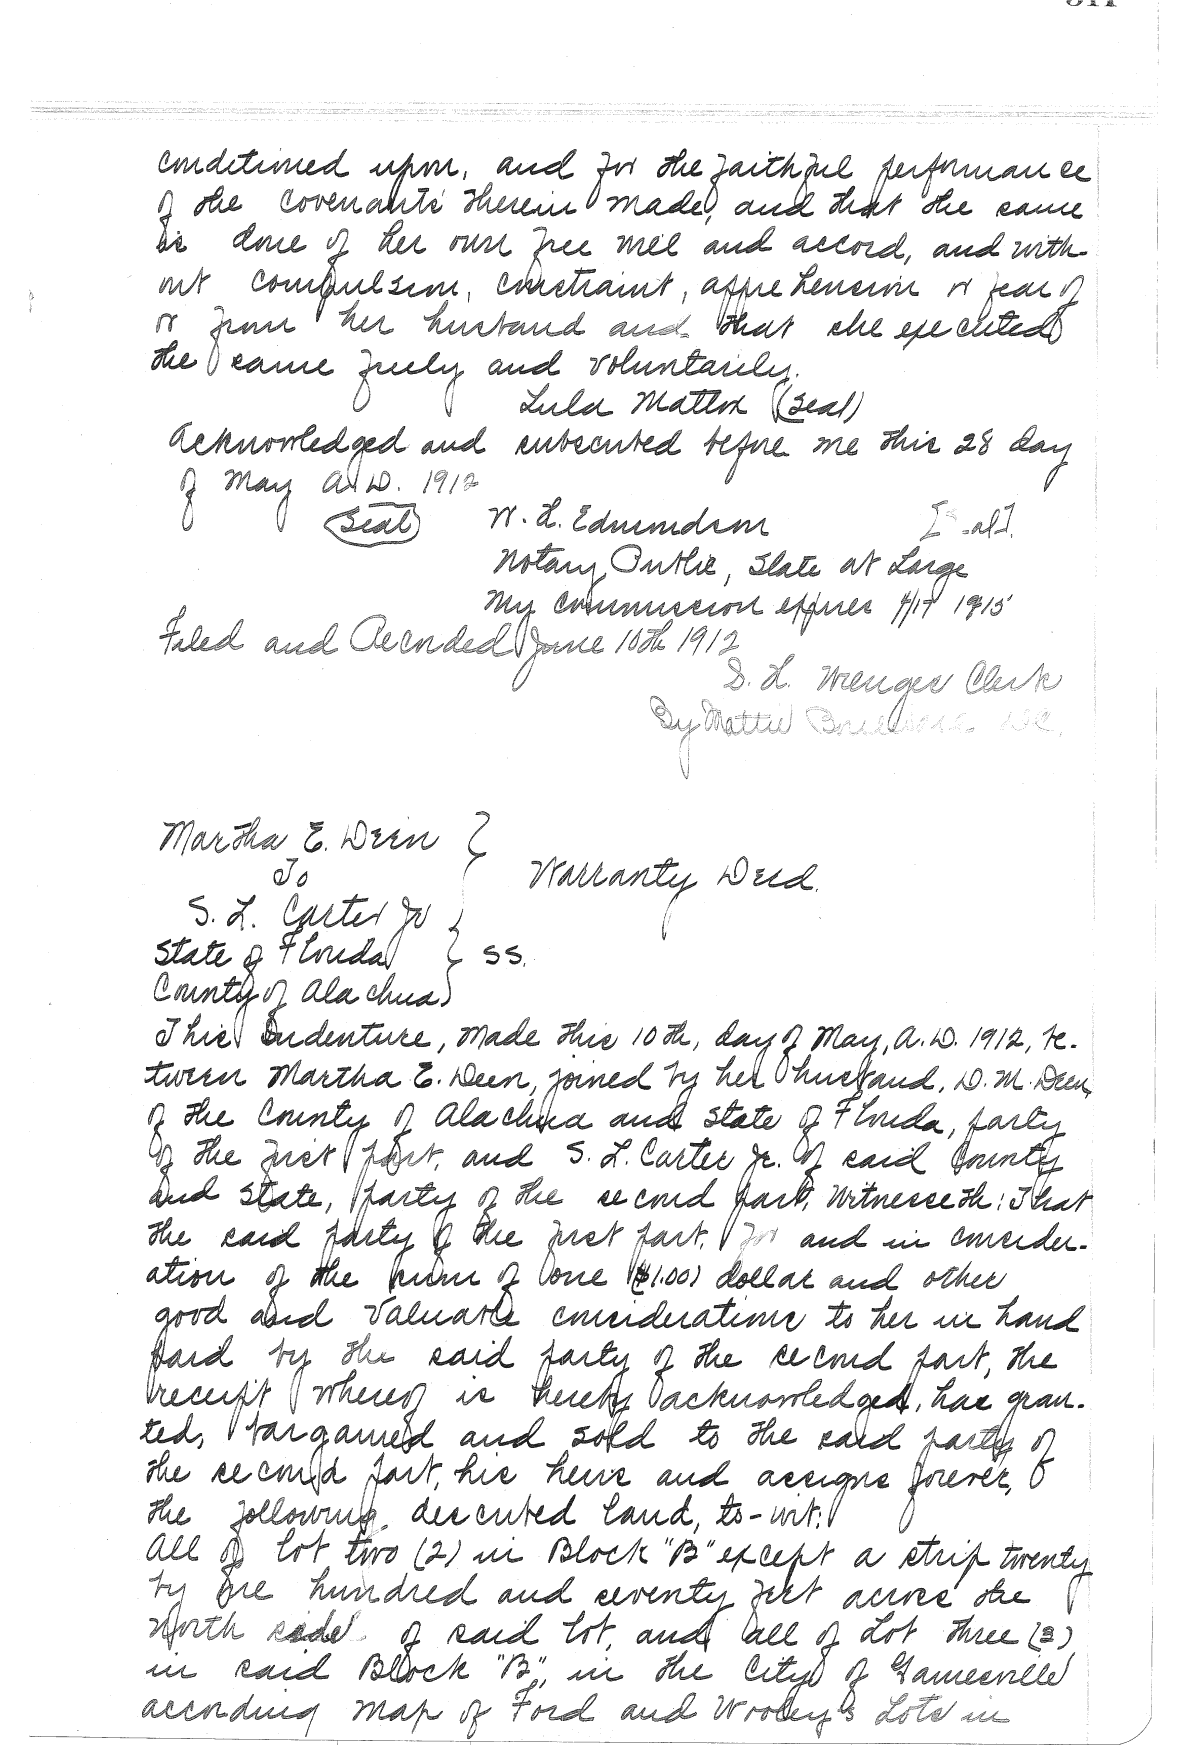 conditioned upon, and for the faithful performance
of the covenants therein made, and that the same
is done of her own free will and accord, and with-
out compulsion, constraint, apprehension or fear of
or from her husband and that she executed
the same freely and voluntarily.
Lula Mattox (Seal)
Acknowledged and subscribed before me this 28 day
of May A.D. 1912
(Seal) W. L. Edmundson
Notary Public, State at Large
My commission expires 4/17 1915
Filed and Recorded June 10th 1912
S. H. Wienges Clerk
By Mattie D.C.
Martha E. Deen }
To
Warranty Deed.
S. L. Carter Jr
State of Florida } SS.
County of Alachua)
This Indenture, Made this 10th, day of May, A.D. 1912, be-
tween Martha E. Deen, joined by her husband, D. M. Deen,
of the County of Alachua and State of Florida, party
of the first part, and S. L. Carter Jr. of said County
and State, party of the second part, Witnesseth: That
the said party of the first part, for and in consider-
ation of the sum of one ($1.00) dollar and other
good and valuable considerations to her in hand
paid by the said party of the second part, the
receipt whereof is hereby acknowledged, has gran-
ted, bargained and sold to the said party of
the second part, his heirs and assigns forever,
the following described land, to-wit:
All of lot two (2) in Block "B" except a strip twenty
by one hundred and seventy feet across the
North side of said lot, and all of Lot three (3)
in said Block "B", in the City of Gainesville
according map of Ford and Wooley's Lots in